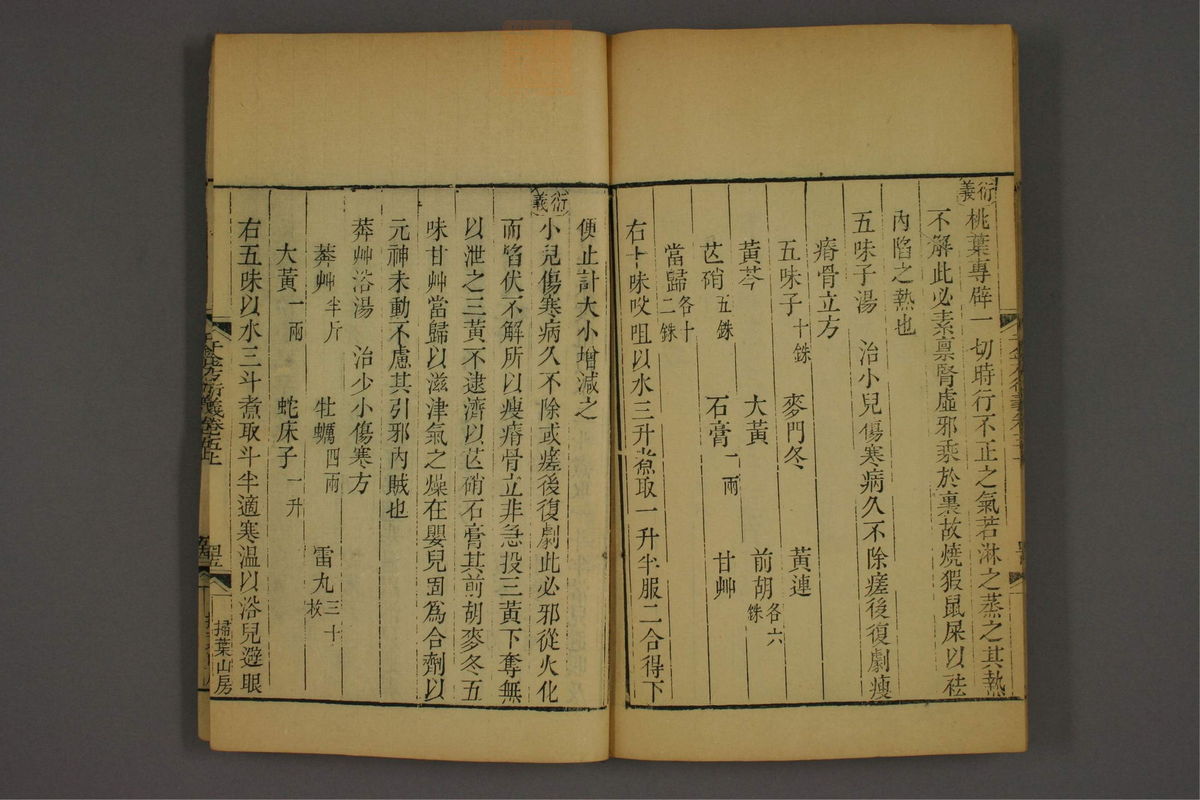 衍義桃葉專辟一切時行不正之氣若淋之蒸之其熱
不解此必素禀腎虛邪乘於裏故燒猳鼠屎以祛
內陷之熱也
五味子湯　治小兒傷寒病久不除瘥後復劇瘦
瘠骨立方
五味子十銖　麥門冬　黃連
黃芩　大黃　前胡各六銖
芒硝五銖　石膏一兩　甘艸
當歸各十二銖
右十味㕮咀以水三升煮取一升半服二合得下
便止計大小增減之
衍義小兒傷寒病久不除或瘥後復劇此必邪從火化
而陷伏不解所以瘦瘠骨立非急投三黃下奪無
以泄之三黃不逮濟以芒硝石膏其前胡麥冬五
味甘艸當歸以滋津氣之燥在嬰兒固爲合劑以
元神未動不慮其引邪內賊也
莽艸浴湯　治少小傷寒方
莽艸半斤　牡蠣四兩　雷丸三十枚
大黃一兩　蛇床子一升
右五味以水三斗煮取斗半適寒温以浴兒避眼
千金方衍義卷五上
掃葉山房